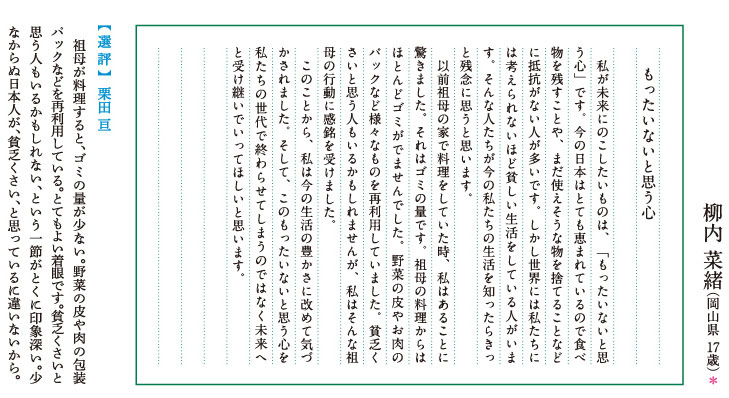 柳内 菜緒（岡山県 17歳）＊
もったいないと思う心
私が未来にのこしたいものは、「もったいないと思
う心」です。今の日本はとても恵まれているので食べ
物を残すことや、まだ使えそうな物を捨てることなど
に抵抗がない人が多いです。しかし世界には私たちに
は考えられないほど貧しい生活をしている人がいま
す。そんな人たちが今の私たちの生活を知ったらきっ
と残念に思うと思います。
以前祖母の家で料理をしていた時、私はあることに
驚きました。それはゴミの量です。祖母の料理からは
ほとんどゴミがでませんでした。野菜の皮やお肉の
パックなど様々なものを再利用していました。貧乏く
さいと思う人もいるかもしれませんが、私はそんな祖
母の行動に感銘を受けました。
このことから、私は今の生活の豊かさに改めて気づ
かされました。そして、このもったいないと思う心を
私たちの世代で終わらせてしまうのではなく未来へ
と受け継いでいってほしいと思います。
【選評】 栗田 亘
祖母が料理すると、ゴミの量が少ない。野菜の皮や肉の包装
パックなどを再利用している。とてもよい着眼です。貧乏くさいと
思う人もいるかもしれない、という一節がとくに印象深い。少
なからぬ日本人が、貧乏くさい、と思っているに違いないから。